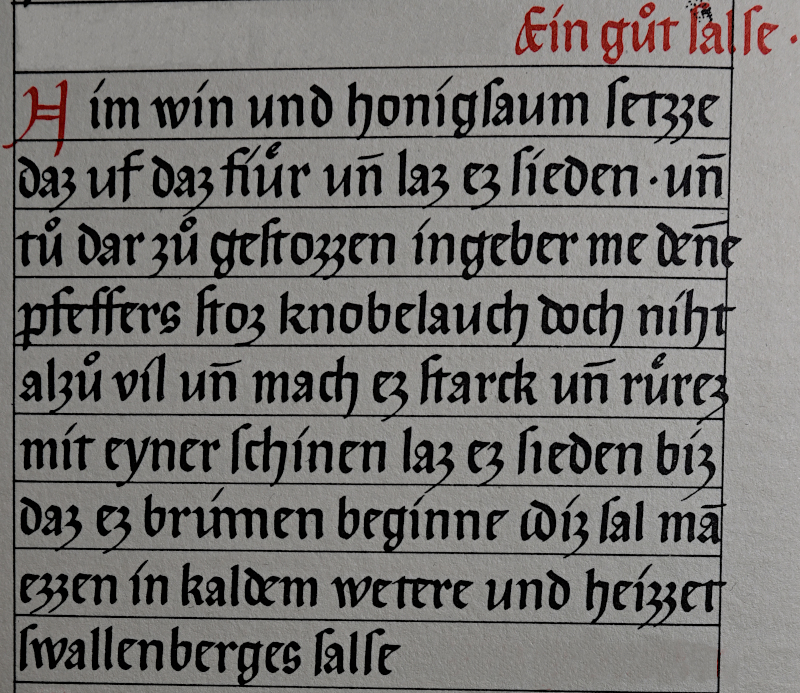 Ein gůt salſe ·
Nim win und honigſaum ſetzze
daz uf daz fiuͤr un̄ laz ez ſieden · un̄
tů dar zů geſtozzen ingeber me den̄e
pfeffers ſtoz knobelauch doch niht
alzů vil un̄ mach ez ſtarck un̄ ruͤrez
mit eyner ſchinen laz ez ſieden biz
daz ez brinnen beginne diz ſal mā
ezzen in kaldem wetere und heizzet
ſwallenberges ſalſe